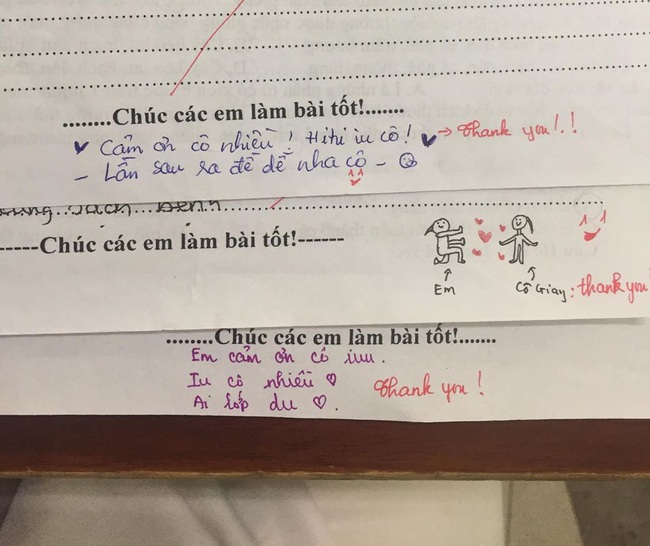 .........Chúc các em làm bài tốt!.......
Cảm ơn cô nhiều! Hihi iu cô! → Thank you!!
- Lần sau ra đề dễ nha cô -
-----Chúc các em làm bài tốt!------
Em
Cô Giay : thank you!
........Chúc các em làm bài tốt!.......
Em cảm ơn cô iuu.
Iu cô nhiều ♡ Thank you!
Ai lớp du ♡.